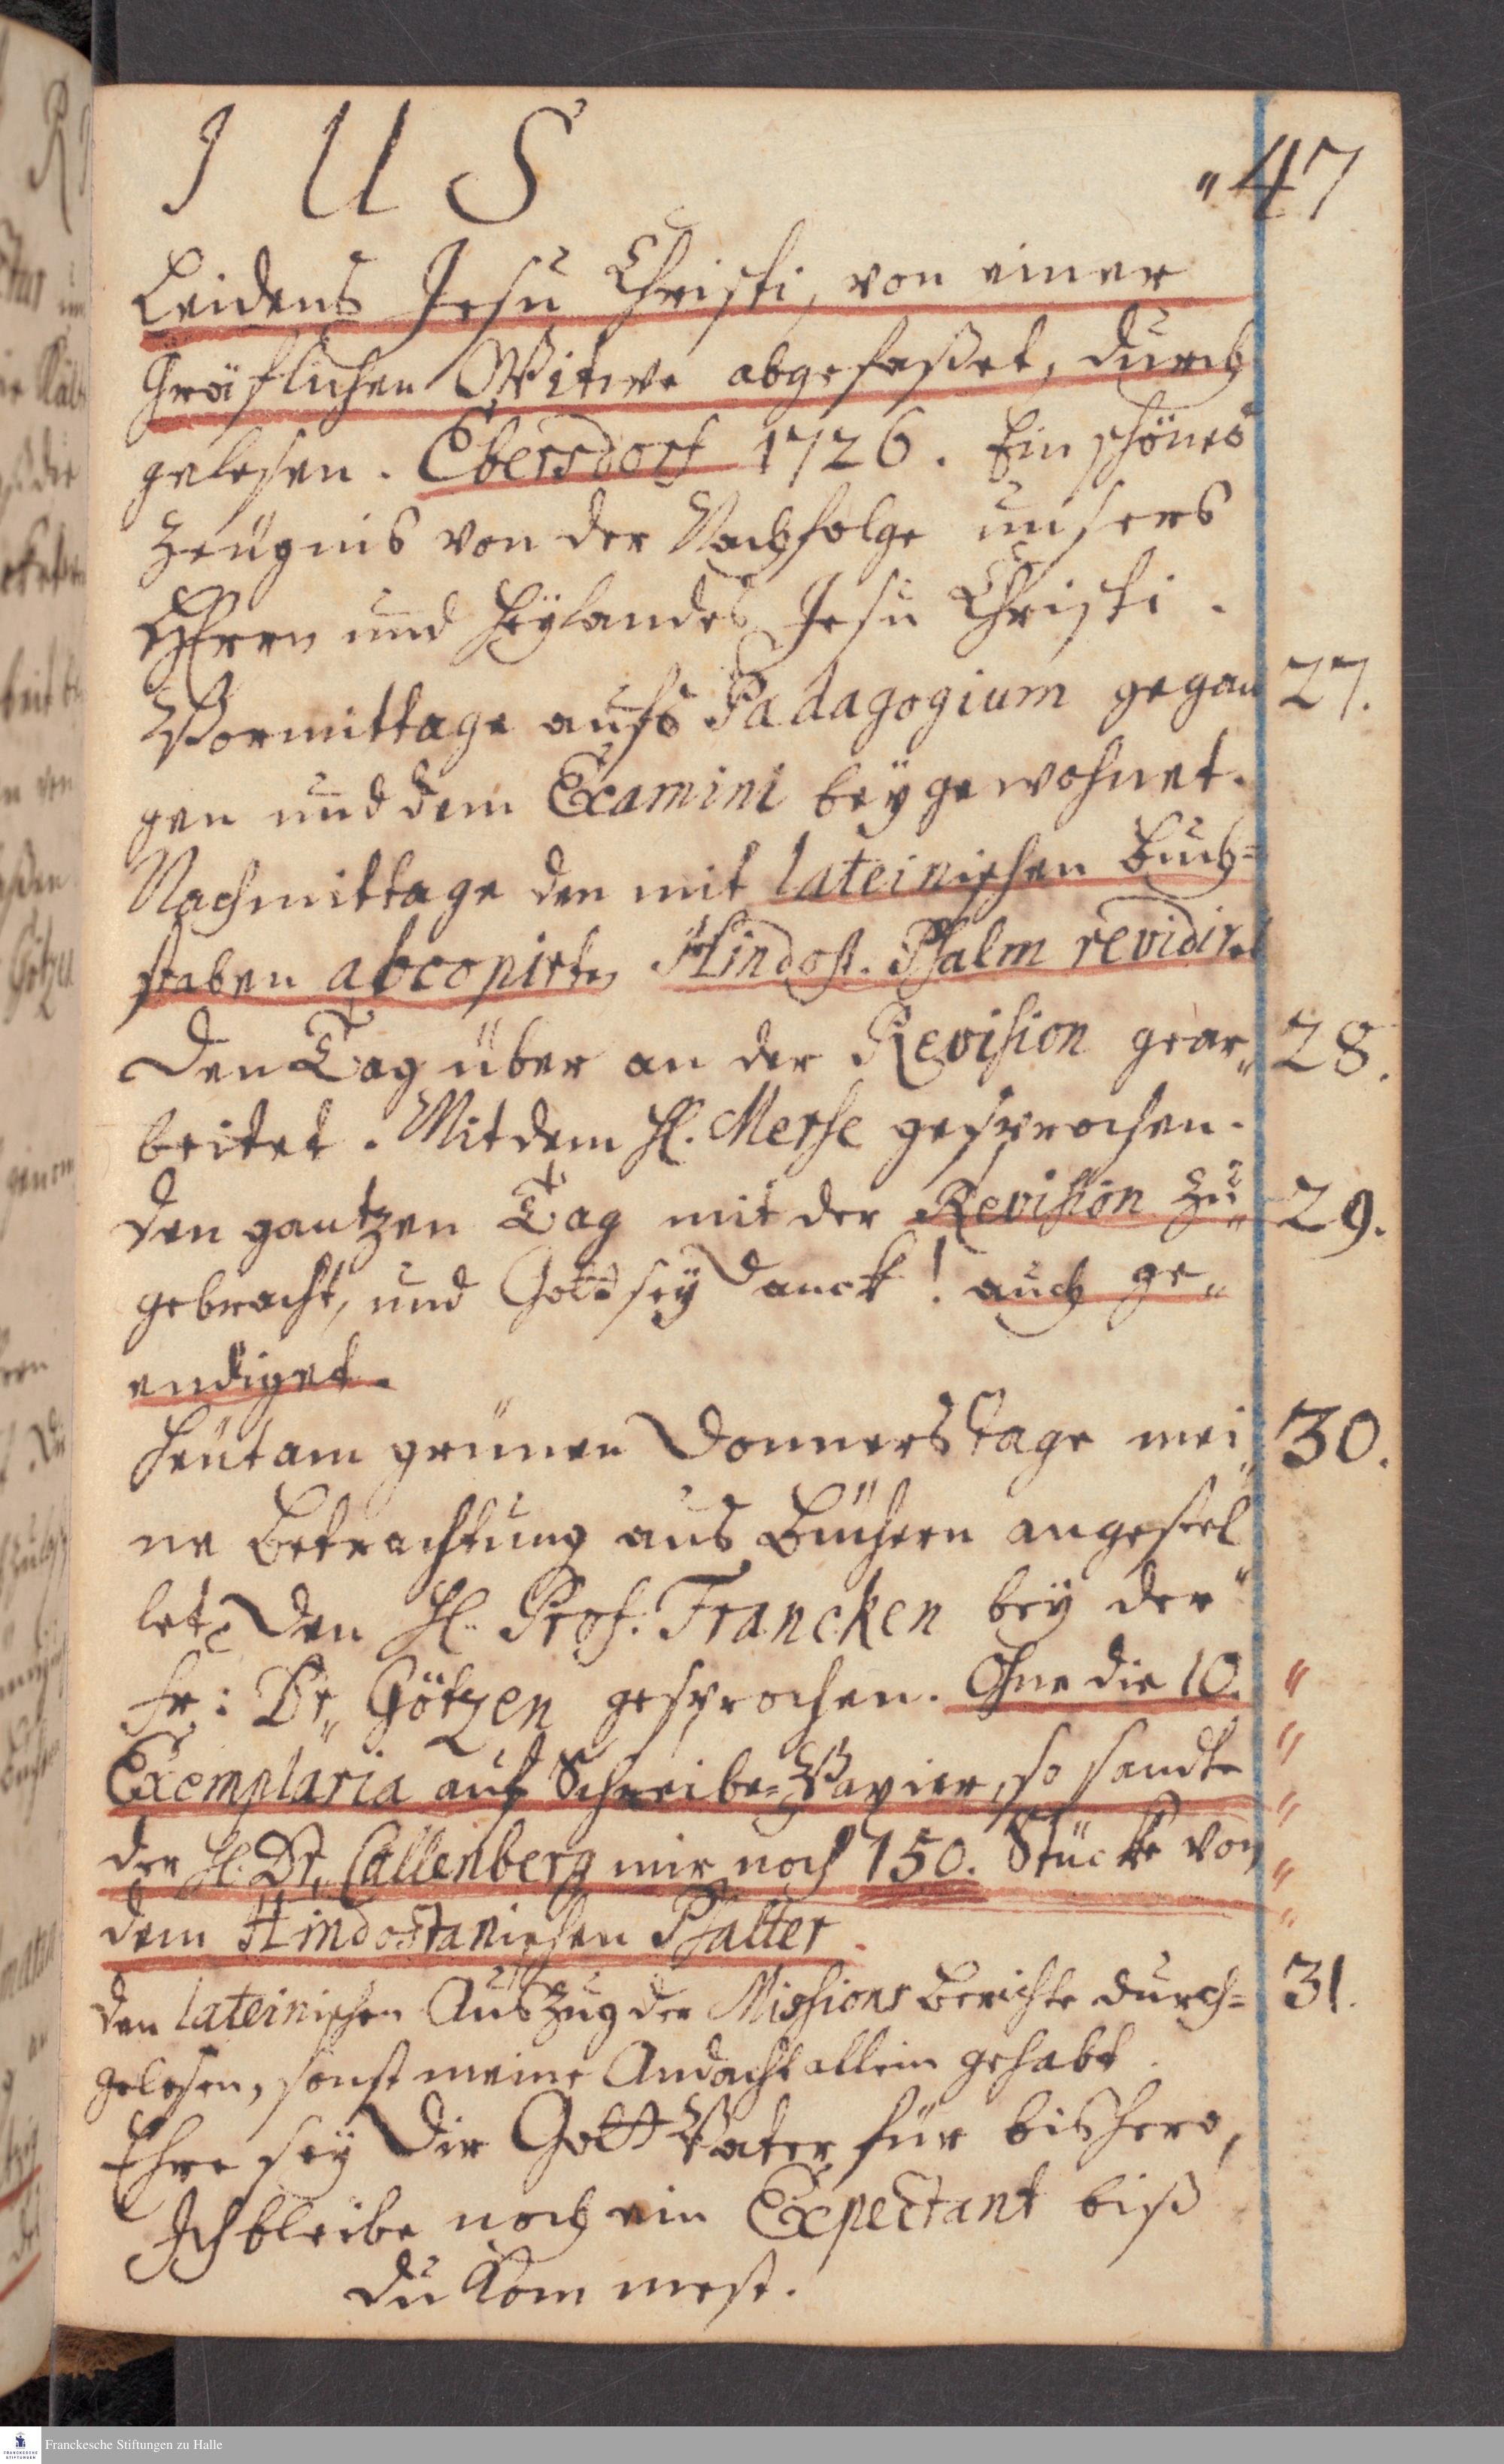 I U S
" 47
Leidens Jesu Christi, von einer
Gräflichen Witwe abgefaßet, durch
gelesen. Ebersdorf 1726. Ein schönes
Zeugnis von der Nachfolge unsers
HErrn und Heÿlandes Jesu Christi.
Vormittage aufs Pädagogium gegan 27.
gen und dem Examini beÿgewohnet.
Nachmittage den mit lateinischen Buch=
staben abcopirten Hindost. Psalm revidiret
Den Tag über an der Revision gear„ 28.
beitet. Mit dem H. Merse gesprochen.
den gantzen Tag mit der Revision zu„ 29.
gebracht, und Gott seÿ Danck! auch ge„
endiget.
Heut am grünen Donnerstage mei„ 30.
ne Betrachtung aus Büchern angestel„
let. Den H. Prof. Francken beÿ der
Fr: Dr. Götzen gesprochen. Ohne die 10.
Exemplaria auf Schreibe=Papier, so sandte
der H. Dr. Callenberg mir noch 150. Stücke von
dem Hindostanischen Psalter.
den lateinischen Auszug der Missions Berichte durch= 31.
gelesen, sonst meine Andacht allein gehabt.
Ehre seÿ Dir Gott Vater für bishero,
Ich bleibe noch ein Expectant biß
du kommest.
Franckesche Stiftungen zu Halle